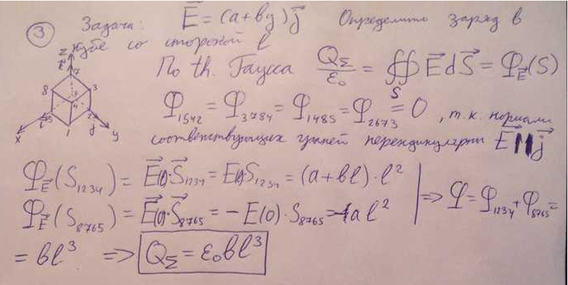 ③ Задача: E⃗ = (a+by) j⃗ Определить заряд в
кубе со стороной l
z 7 8 3 x 5 1 2 y
По th. Гаусса Q_Σ/ε₀ = ∯_S E⃗ dS⃗ = φ_E⃗(S)
φ₁₅₄₂ = φ₃₇₈₄ = φ₁₄₈₅ = φ₂₆₇₃ = 0, т.к. нормали
соответствующих граней перпендикулярны E⃗ || j⃗
φ_E⃗(S₁₂₃₄) = E⃗(l)·S⃗₁₂₃₄ = E(l)·S₁₂₃₄ = (a+bl)·l²
φ_E⃗(S₈₇₆₅) = E⃗(0)·S⃗₈₇₆₅ = -E(0)·S₈₇₆₅ = -al² => φ = φ₁₂₃₄ + φ₈₇₆₅ =
= bl³ => Q_Σ = ε₀bl³